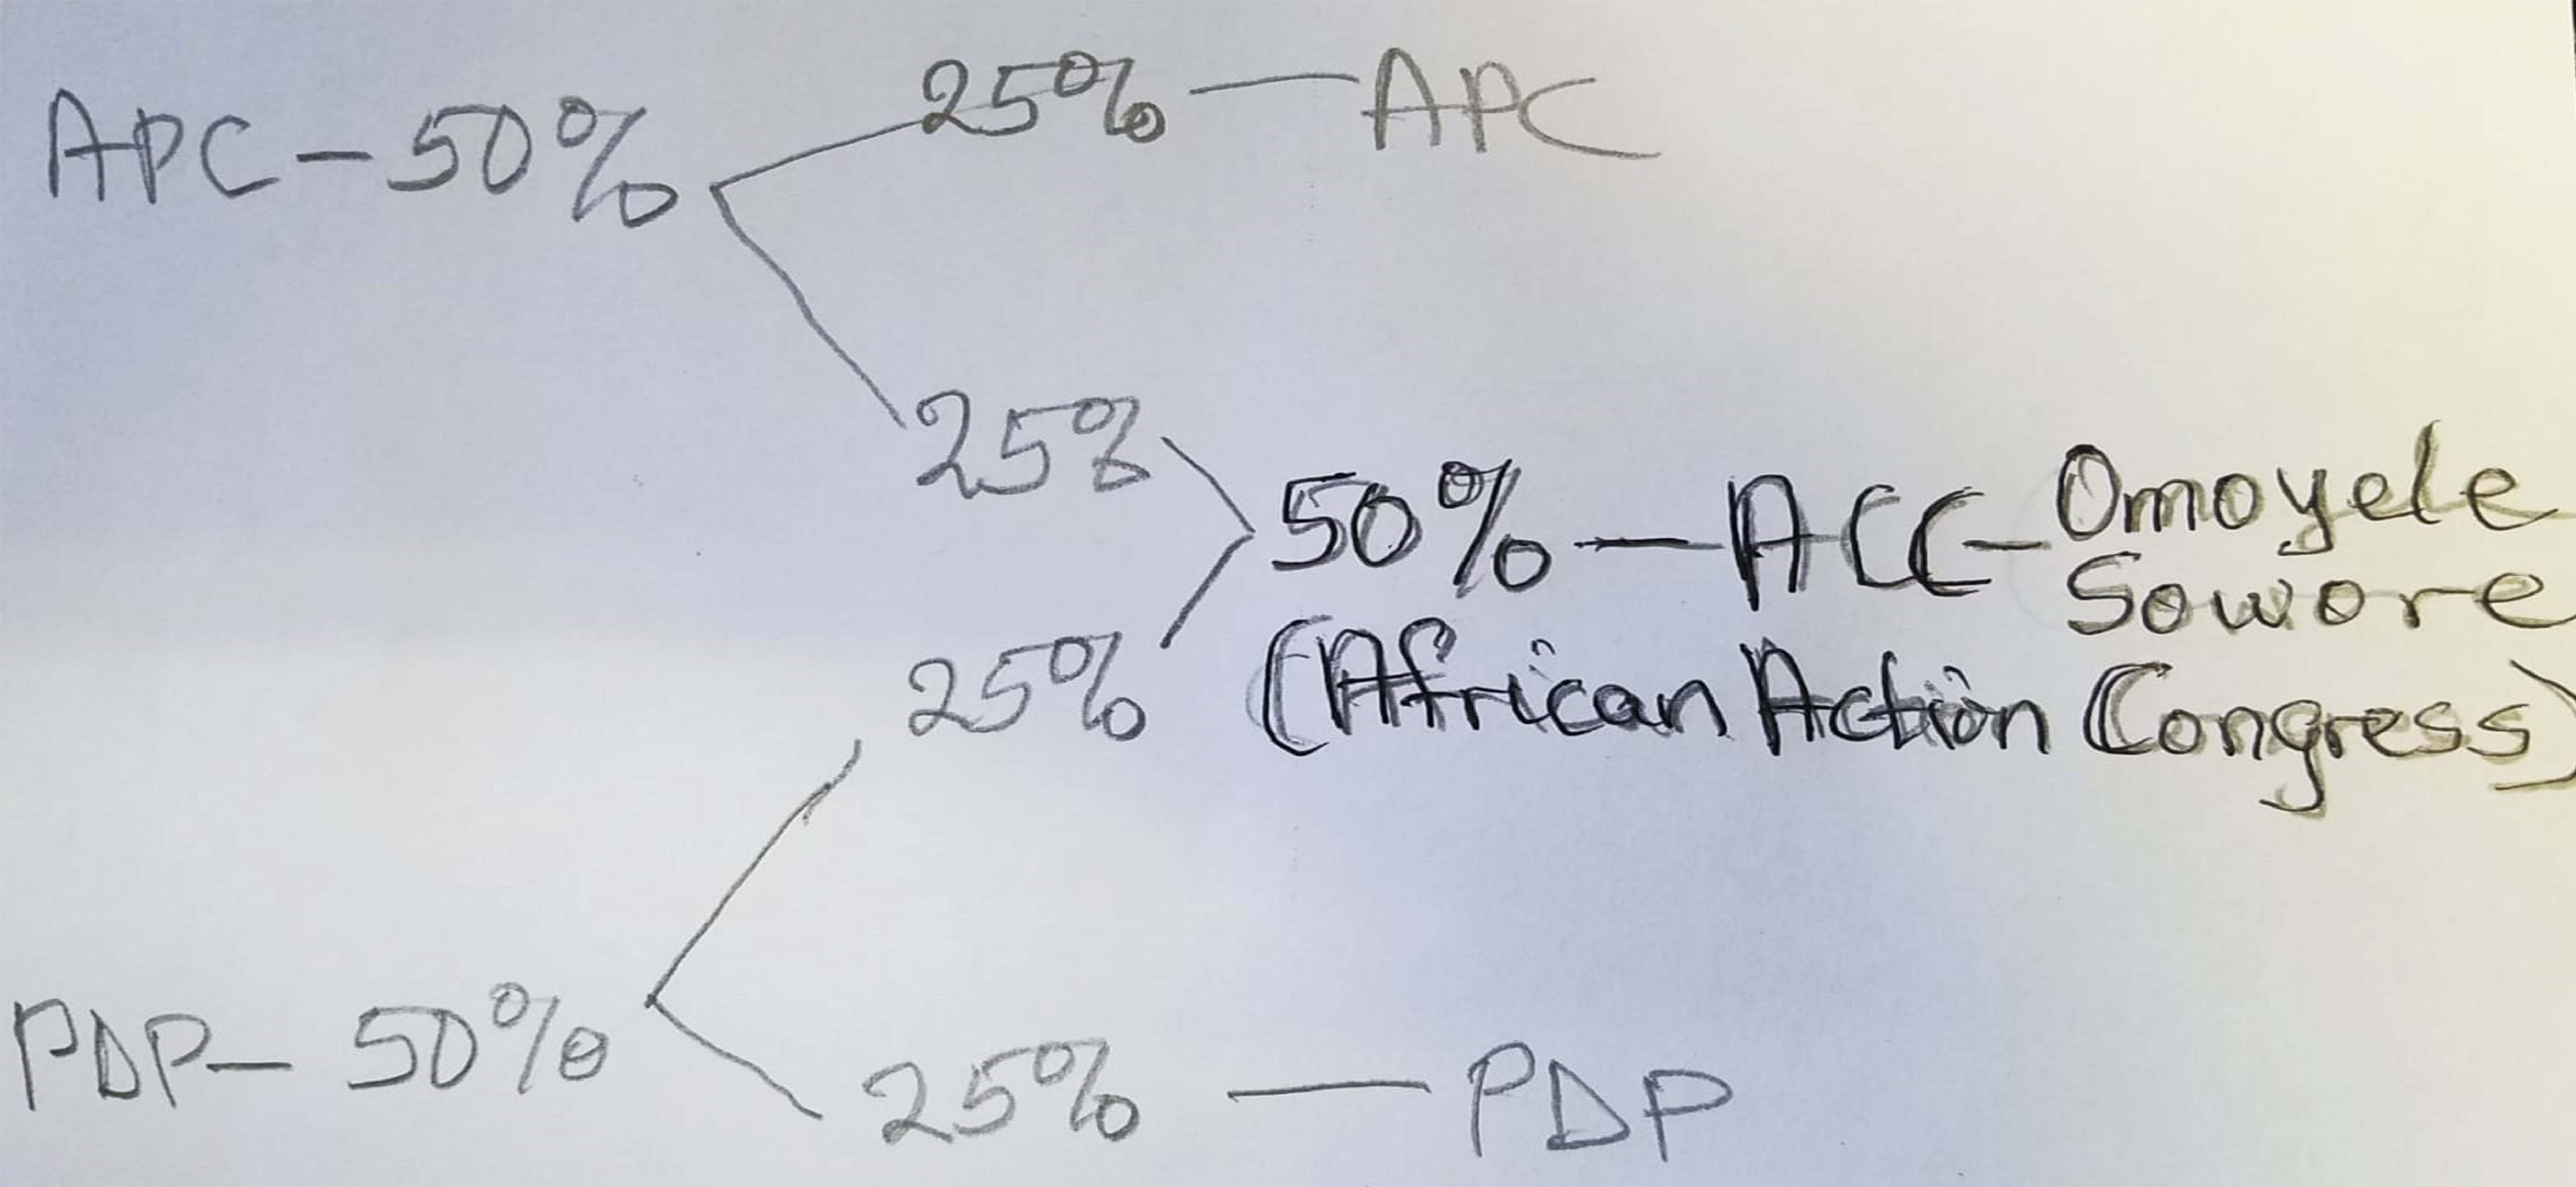 APC - 50%
25% - APC
25%
50% - ACC - Omoyele Sowore
(African Action Congress)
25%
PDP - 50%
25% - PDP